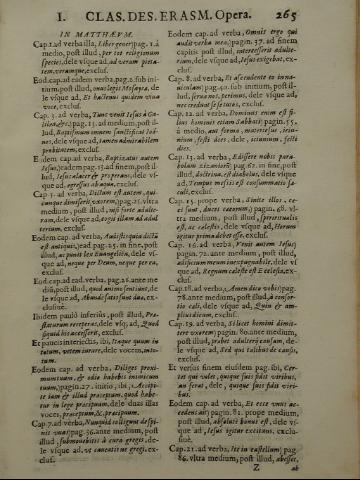 I. CLAS. DES. ERASM. Opera. 265
IN MATTHÆVM.
Cap.1.ad verba illa, Liber generis pag.1.à
medio, post illud, per tot religionum
species, dele vsque ad, ad veram pieta-
tem, veramque, exclus.
Eod.cap.ad eadem verba pag.2. sub ini-
tium, post illud, onus legis Mosaycæ, de
le vsque ad, Et hactenus quidem vna
voce, exclus.
Cap. 3. ad verba, Tunc venit Iesus à Ga-
lilæa, &c. pag.13. ad medium, post il-
lud, Baptismum innuens sanctificat lot
nes, dele vsque ad, tamen admirabilem
prohibentem, exclus.
Eisdem cap. ad verba, Baptizatus autem
Iesus, eadem pag.13. ad finem, post il-
lud, Iesus alacer & properans, dele vs-
que ad, egressus ab aqua, exclus.
Cap. 5. ad verba, Dictum est autem, qui-
cunque dimiserit vxorem, pag.25. vltra
medium, post illud, nisi forte adulte-
ram, dele vsque ad, ergo illam ad adul
terium, exclus.
Eodem cap. ad verba, Audistis quia dictū
est antiquis, ead. pag. 25. in fine, post
illud, ac punit lex Euangelica, dele vs-
que ad, neque per Deum, neque per ea,
exclus.
Eod.cap.ad ead.verba, pag.26.ante me
diū, post illud, quod animo sentiunt, de
le vsque ad, Abunde satis sunt duo, ex-
clusiuè.
Ibidem paulò inferiùs, post illud, Præ-
staturum receperas, dele vsq; ad, Quod
si quid his accesserit, exclus.
Et paucis interiectis, ibi, Itaque quum in
totum, vetem iurare, dele vocem, in to-
tum.
Eodem cap. ad verba, Diliges proxi-
mum tuum, & odio habebis inimicum
tuum, pagin. 27. initio, ibi, Accipi-
te iam & illud præceptum, quod habe-
tur in lege præceptum, dele duas illas
voces, præceptum, & præceptum.
Cap.7. ad verba, Nunquid colligunt de spi-
nis vuas, pag.36. ante medium, post
illud, submouebitis à cura gregis, de-
le vsque ad, vt caueatis me gregi, ex-
clus.
Eodem cap. ad verba, Omnis ergo qui
audit verba mea, pagin.37. ad finem
capitis, post illud, intercesserit adulte-
rium, dele vsque ad, Iesus exigebat, ex-
clus.
Cap. 8. ad verba, Et ascendente eo in na-
uiculam, pag.40. sub initium, post il-
lud, serua nos, terimus, dele vsque ad,
nec credunt se seturos, exclus.
Cap. 12. ad verba, Dominus enim est fi-
lius hominis etiam Sabbati, pagin.55.
à medio, aut forma, materiesue, ieiu-
nium, festi dies, dele, ieiunium, festi
dies.
Cap. 13. ad verba, Edissere nobis para-
bolam zizaniorū, pag.62. in fine, post
illud, doctrina. est diabolus, dele vsque
ad, Tempus messis est consummatio sæ-
culi, exclus.
Cap. 15. propè verba, Sinite illos, cæ-
ci sunt, duces cæcorum, pagin. 68. vl-
tra medium, post illud, spiritualis
est, ac cælestis, dele vsque ad, Horum
igitur prima debet esse, exclus.
Cap. 16. ad verba, Venit autem Iesus,
pagin. 70. ante medium, post illud,
ædificium meum inexpugnabile, dele vs-
que ad, Regnum cæleste est Ecclesia, ex-
clus.
Cap.18.ad verba, Amen dico vobis, pag.
78. ante medium, post illud, à consor-
tio eius, dele vsque ad, Quin & am-
plius dicam, exclus.
Cap. 19. ad verba, Si licet homini dimit-
tere vxorem, pagin. 80. ante medium,
post illud, præbet adulterij causam, de-
le vsque ad, Sed qui talibus de causis,
exclus.
Et versus finem eiusdem pag. ibi, Cer-
tet qui volet, quique suis fidit viribus,
aut serat, dele, quique suis fidit viri-
bus.
Eodem cap. ad verba, Et ecce vnus ac-
cedens ait, pagin. 81. propè medium,
post illud, absolutè bonus est, dele vs-
que ad, Iesus igitur excitans, exclu-
siuè.
Cap. 21. ad verba, Ite in castellum, pag.
86. vltra medium, post illud, abesset,
Z ab